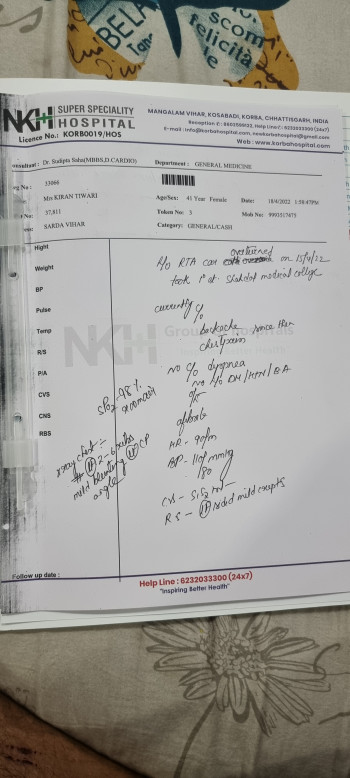 BELA
scom
felicità
NKH SUPER SPECIALITY HOSPITAL
Licence No.: KORB0019/HOS
MANGALAM VIHAR, KOSABADI, KORBA, CHHATTISGARH, INDIA
Web : www.korbahospital.com
Dr. Sudipta Saha(MBBS,D.CARDIO) Department : GENERAL MEDICINE
33066
Mrs KIRAN TIWARI Age/Sex: 41 Year Female Date: 18/4/2022 1:50:47PM
37,811 Token No: 3 Mob No: 9993317475
SARDA VIHAR Category: GENERAL/CASH
Hight
Weight
BP
Pulse
Temp
R/S
P/A
CVS
CNS
RBS
H/o RTA car overturned on 15/4/22
took 1st at medical college
currently c/o
backache since then
chest pain
no c/o dyspnea
no H/o DM/HTN/BA
O/E
afebrile
HR - 90/m
BP - 110/80 mmHg
CVS - S1S2
RS - mild crepts
SPO2 - 98%
xray chest :-
mild blunting CP
angle
NKH Group of Hospitals
Follow up date :
Help Line : 6232033300 (24x7)
"Inspiring Better Health"